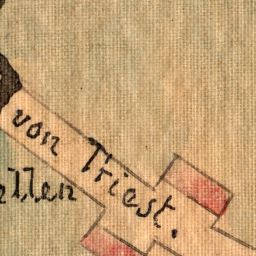 von Triest.
llen